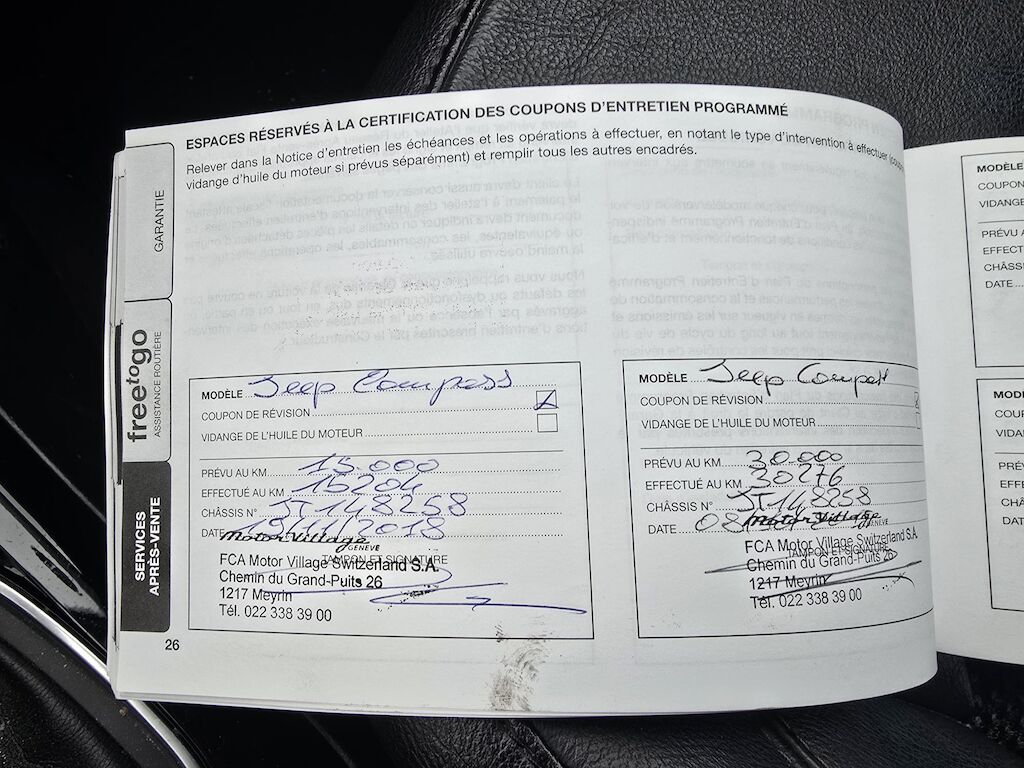 ESPACES RÉSERVÉS À LA CERTIFICATION DES COUPONS D'ENTRETIEN PROGRAMMÉ
Relever dans la Notice d'entretien les échéances et les opérations à effectuer, en notant le type d'intervention à effectuer
vidange d'huile du moteur si prévus séparément) et remplir tous les autres encadrés.
GARANTIE
freetogo
ASSISTANCE ROUTIÈRE
SERVICES
APRÈS-VENTE
MODÈLE Jeep Compass
COUPON DE RÉVISION
VIDANGE DE L'HUILE DU MOTEUR
PRÉVU AU KM 15.000
EFFECTUÉ AU KM 15204
CHÂSSIS N° JT148258
DATE 19/11/2018
Motor Village
GENÈVE
TAMPON ET SIGNATURE
FCA Motor Village Switzerland S.A.
Chemin du Grand-Puits 26
1217 Meyrin
Tél. 022 338 39 00
26
MODÈLE Jeep Compass
COUPON DE RÉVISION
VIDANGE DE L'HUILE DU MOTEUR
PRÉVU AU KM 30.000
EFFECTUÉ AU KM 30276
CHÂSSIS N° JT148258
DATE 08
Motor Village
GENÈVE
TAMPON ET SIGNATURE
FCA Motor Village Switzerland S.A.
Chemin du Grand-Puits 26
1217 Meyrin
Tél. 022 338 39 00
MODÈLE
COUPON
VIDANGE
PRÉVU A
EFFECT
CHÂSSI
DATE
MOD
COU
VIDA
PRÉ
EFFE
CHÂ
DAT